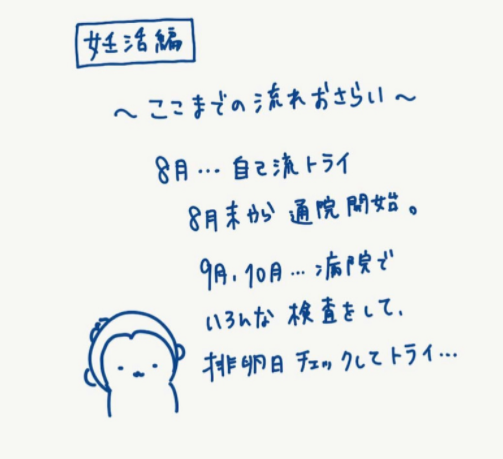 妊活編
～ここまでの流れおさらい～
8月…自己流トライ
8月末から通院開始。
9月、10月…病院で
いろんな検査をして、
排卵日チェックしてトライ…